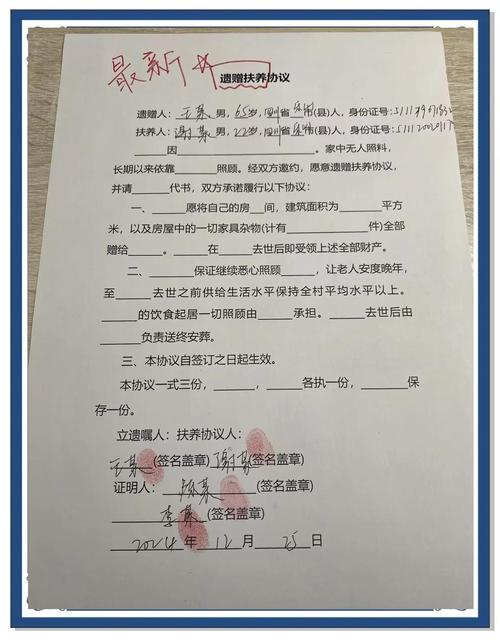 最新
遗赠扶养协议
遗赠人：王某 男，65岁，四川省 (县)人，身份证号：
扶养人：谢某 男，22岁，四川省 (县)人，身份证号：
______因____________。家中无人照料，
长期以来依靠______照顾。经双方邀约，愿意遗赠扶养协议，
并请______代书，双方承诺履行以下协议：
一、______愿将自己的房__间，建筑面积为______平方
米，以及房屋中的一切家具杂物(计有____________件)全部
赠给______。______在______去世后即受领上述全部财产。
二、______保证继续悉心照顾______，让老人安度晚年，
至______去世之前供给生活水平保持全村平均水平以上。
______的饮食起居一切照顾由______承担。______去世后由
______负责送终安葬。
三、本协议自签订之日起生效。
本协议一式三份，______，______各执一份，______保
存一份。
立遗嘱人：扶养协议人：
王某(签名盖章)谢某(签名盖章)
证明人：陈某(签名盖章)
李某(签名盖章)
2024年12月25日